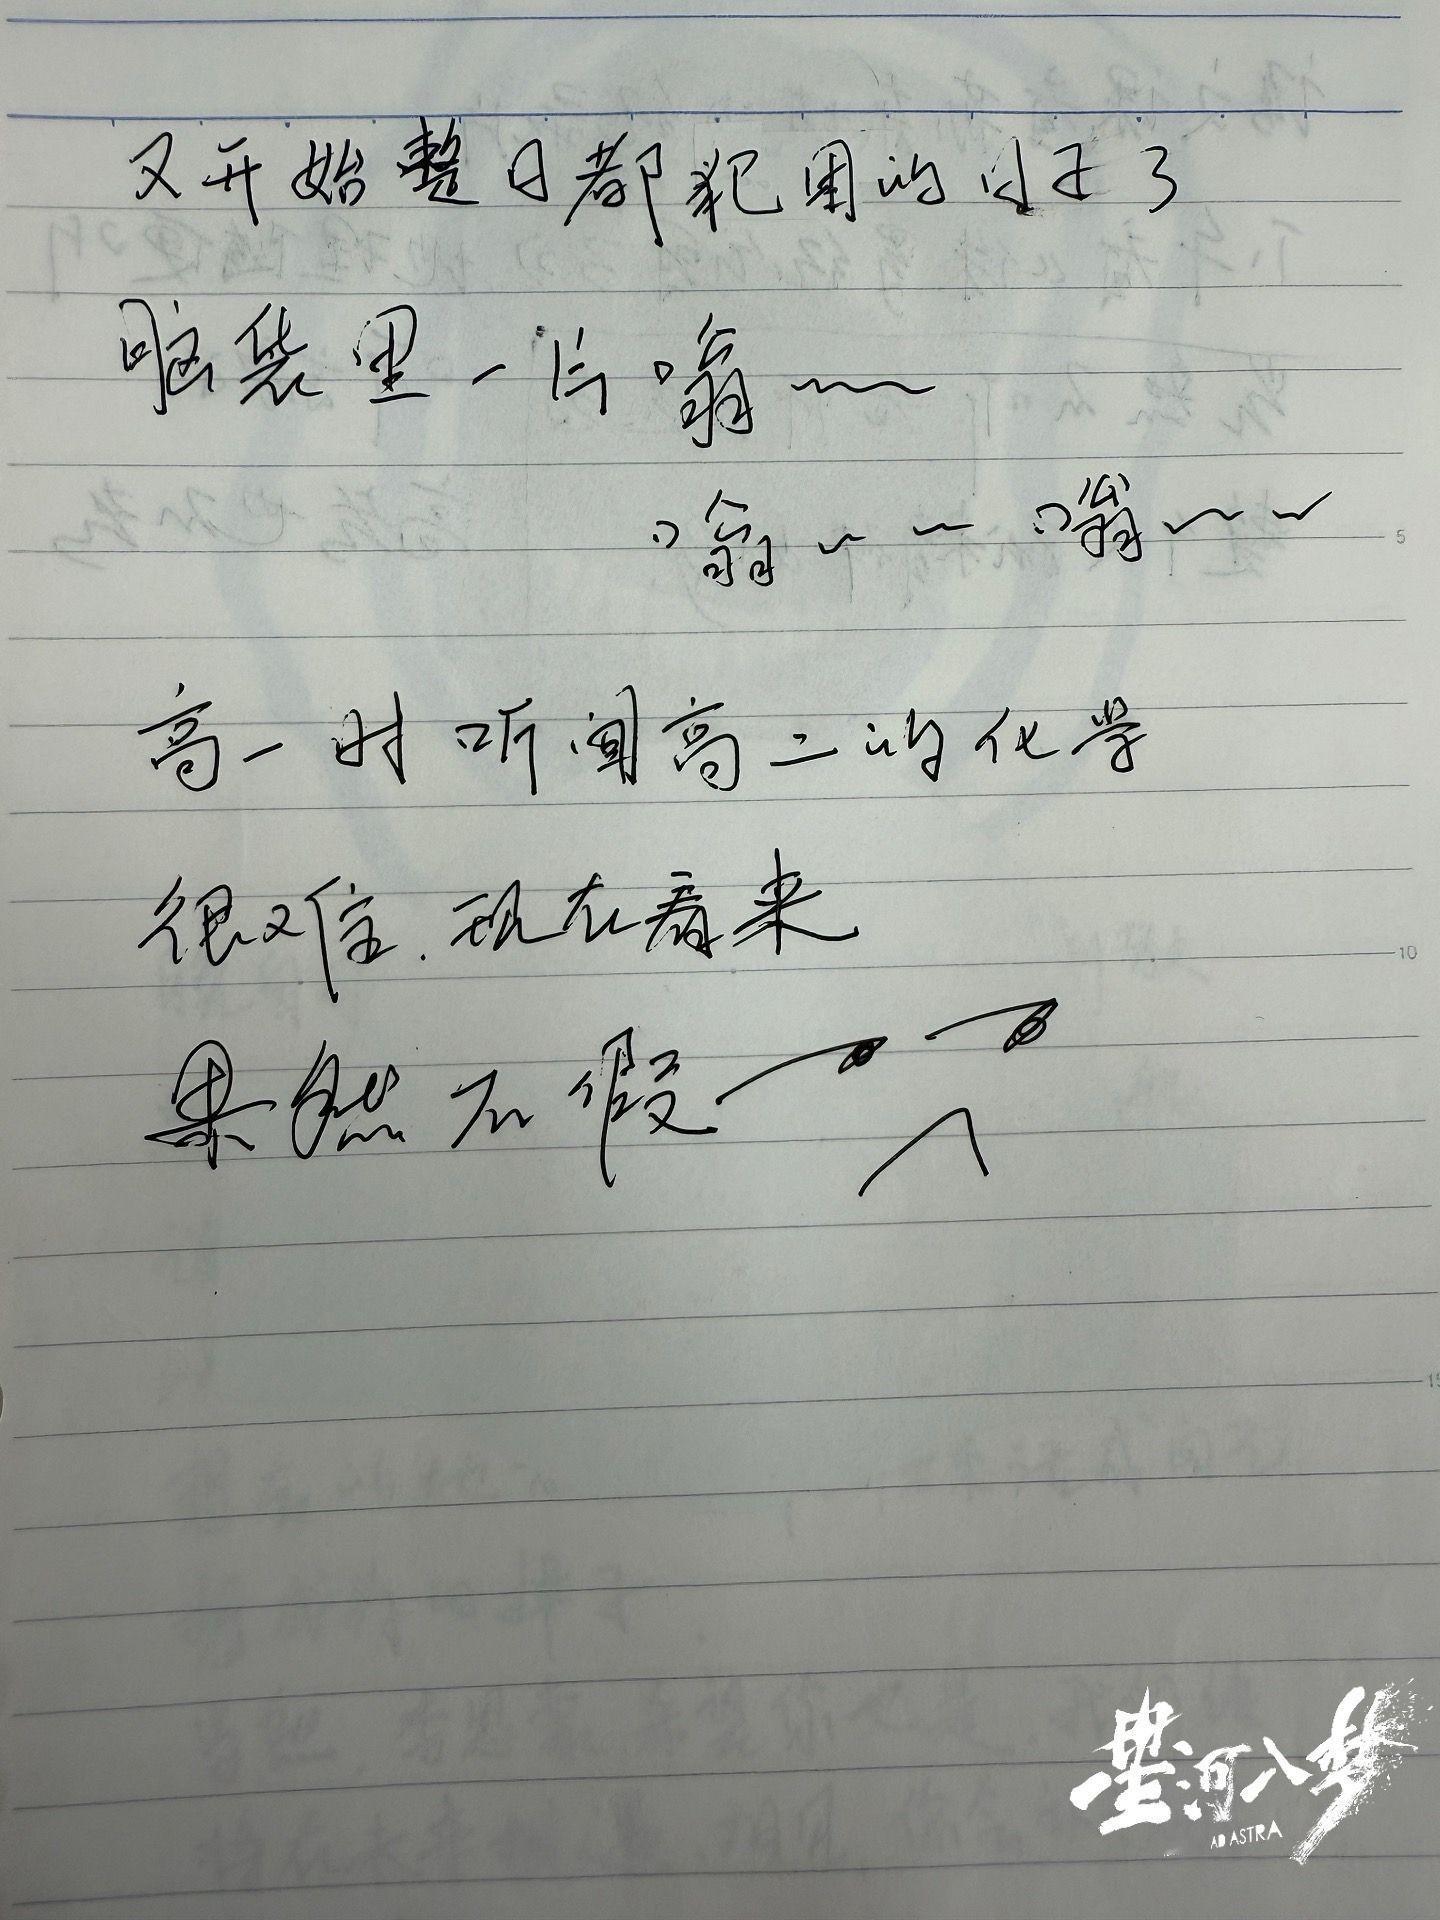 又开始整日都犯困的日子了
脑袋里一片嗡~~
嗡~~嗡~~
高一时听闻高二的化学
很难.现在看来
果然不假
5
10
15
星河入梦
AD ASTRA